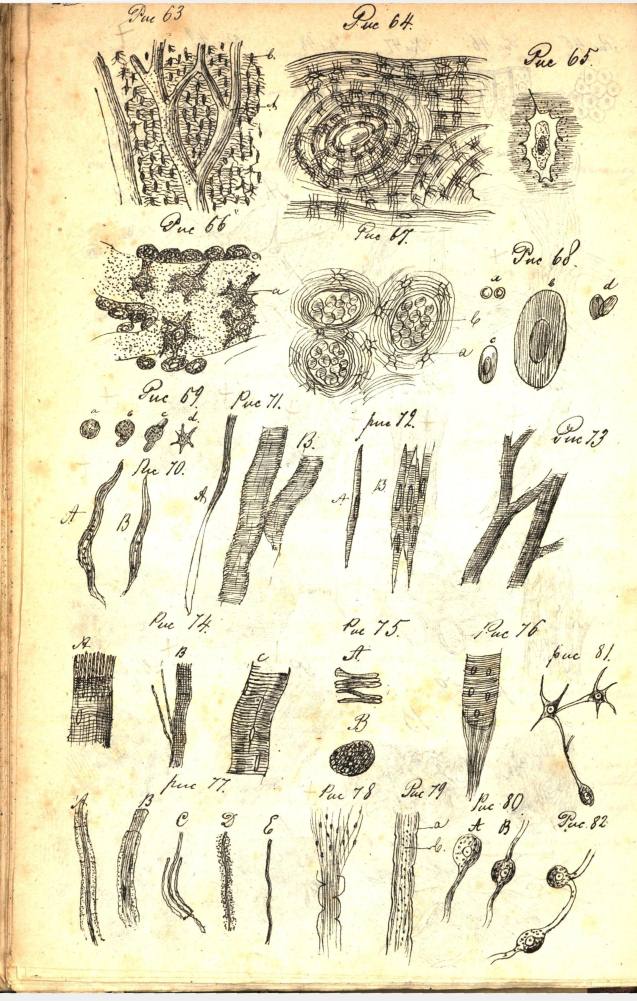 Рис 63
Рис 64
Рис 65.
b.
A
Рис 66
Рис 67.
Рис 68.
a
b
a
a
b
c
d
Рис 69
a
b
c
d
Рис 71
A
B.
рис 72.
A
B
Рис 73
Рис 70.
A
B
Рис 74.
A
B
C
Рис 75.
A.
B
Рис 76
рис 81.
рис 77.
A
B
C
D
E
Рис 78
Рис 79
a
b.
Рис 80
A
B
Рис. 82